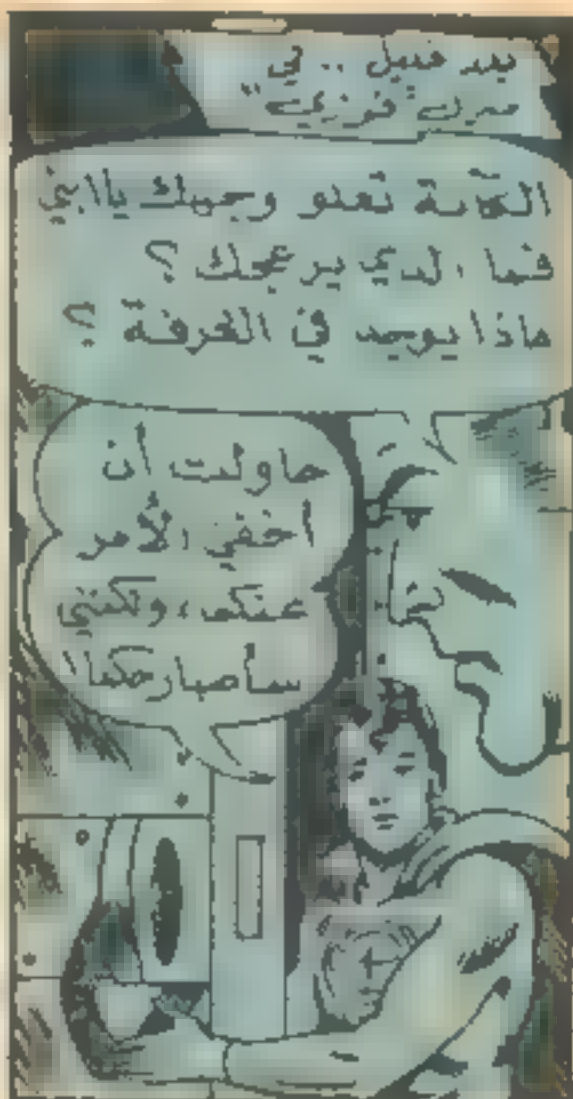 بعد قليل .. في
منزل "فوزي"
الكآبة تعلو وجهك يا ابني
فما الذي يزعجك ؟
ماذا يوجد في الغرفة ؟
حاولت أن
أخفي الأمر
عنكما ، ولكنني
سأصارحكما !